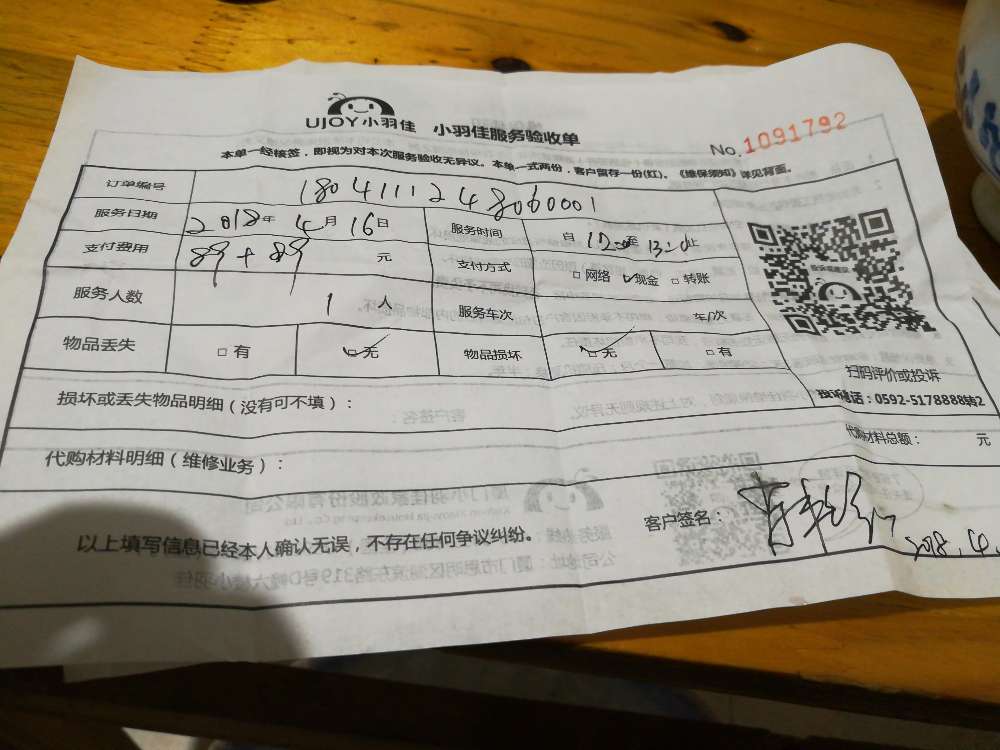 UJOY小羽佳 小羽佳服务验收单
No. 1091792
本单一经核签，即视为对本次服务验收无异议。本单一式两份，客户留存一份(红)。《维保须知》详见背面。
订单编号 1804111248060001
服务日期 2018年 4月 16日 服务时间 自 12:00至 13:0止
支付费用 89+89 元 支付方式 □网络 ☑现金 □转账
服务人数 1 人 服务车次 车/次
物品丢失 □有 ☑无 物品损坏 ☑无 □有
扫码评价或投诉
电话：0592-5178888转2
损坏或丢失物品明细（没有可不填）：
代购材料总额： 元
代购材料明细（维修业务）：
客户签名：
2018.4.
以上填写信息已经本人确认无误，不存在任何争议纠纷。